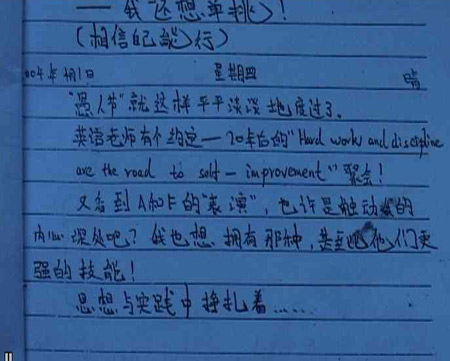 ——我"还想单挑"!
(相信自己能行)
2004年4月1日 星期四 晴
"愚人节"就这样平平淡淡地度过了。
英语老师有个约定—20年后的"Hard work and discipline
are the road to self-improvement"聚会!
又看到A和F的"表演",也许是触动我的
内心深处吧?我也想拥有那种,甚至比他们更
强的技能!
思想与实践中挣扎着……